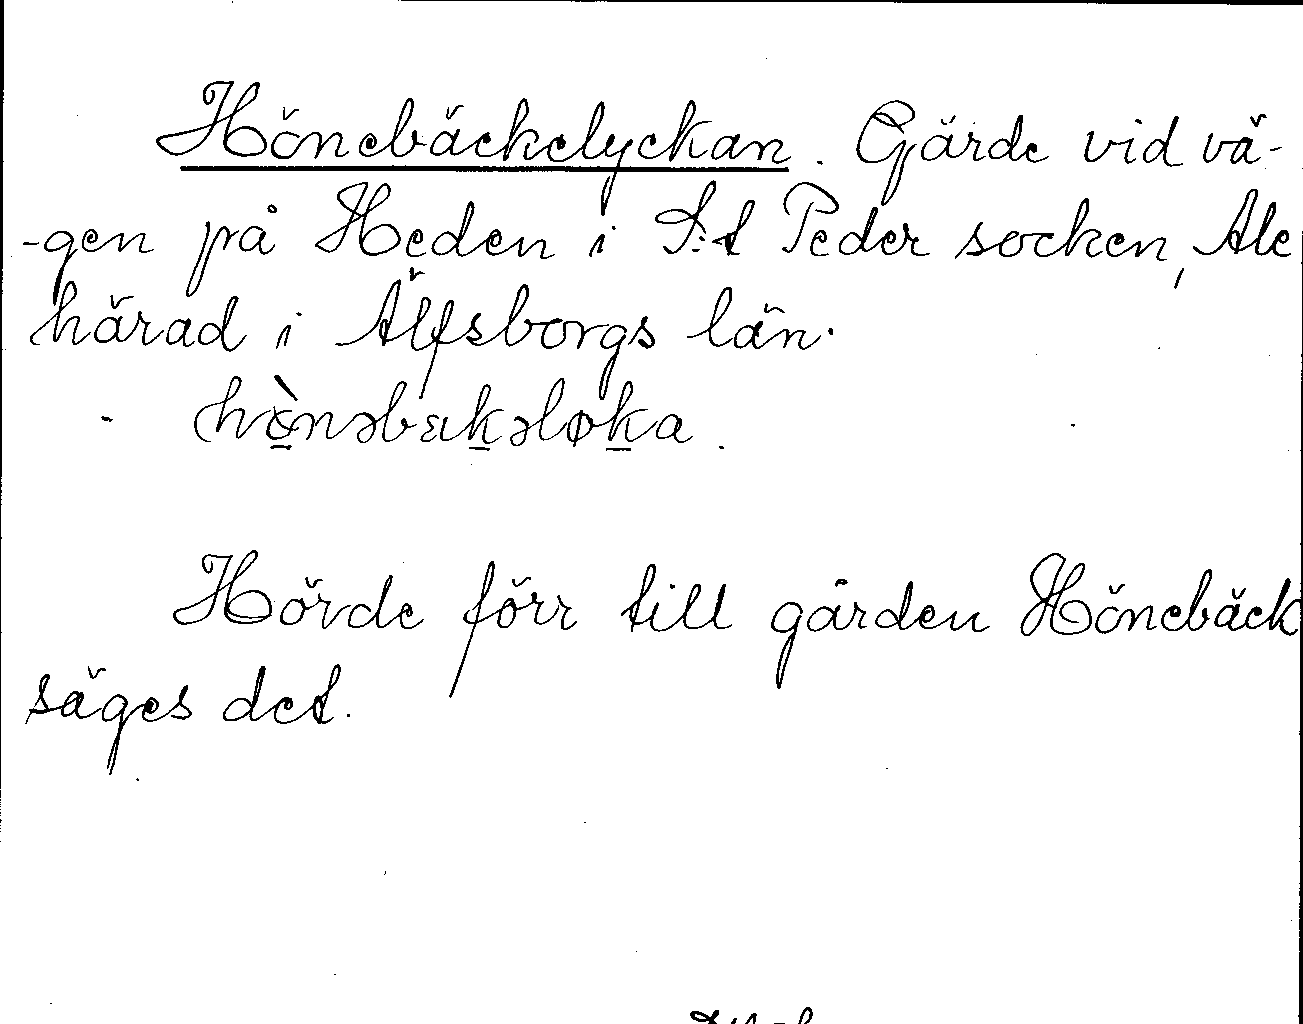 Hönebäckelyckan. Gärde vid vä-
-gen på Heden i S:t Peder socken, Ale
härad i Älfsborgs län.
hènəbækəløka.
Hörde förr till gården Hönebäck
säges det.